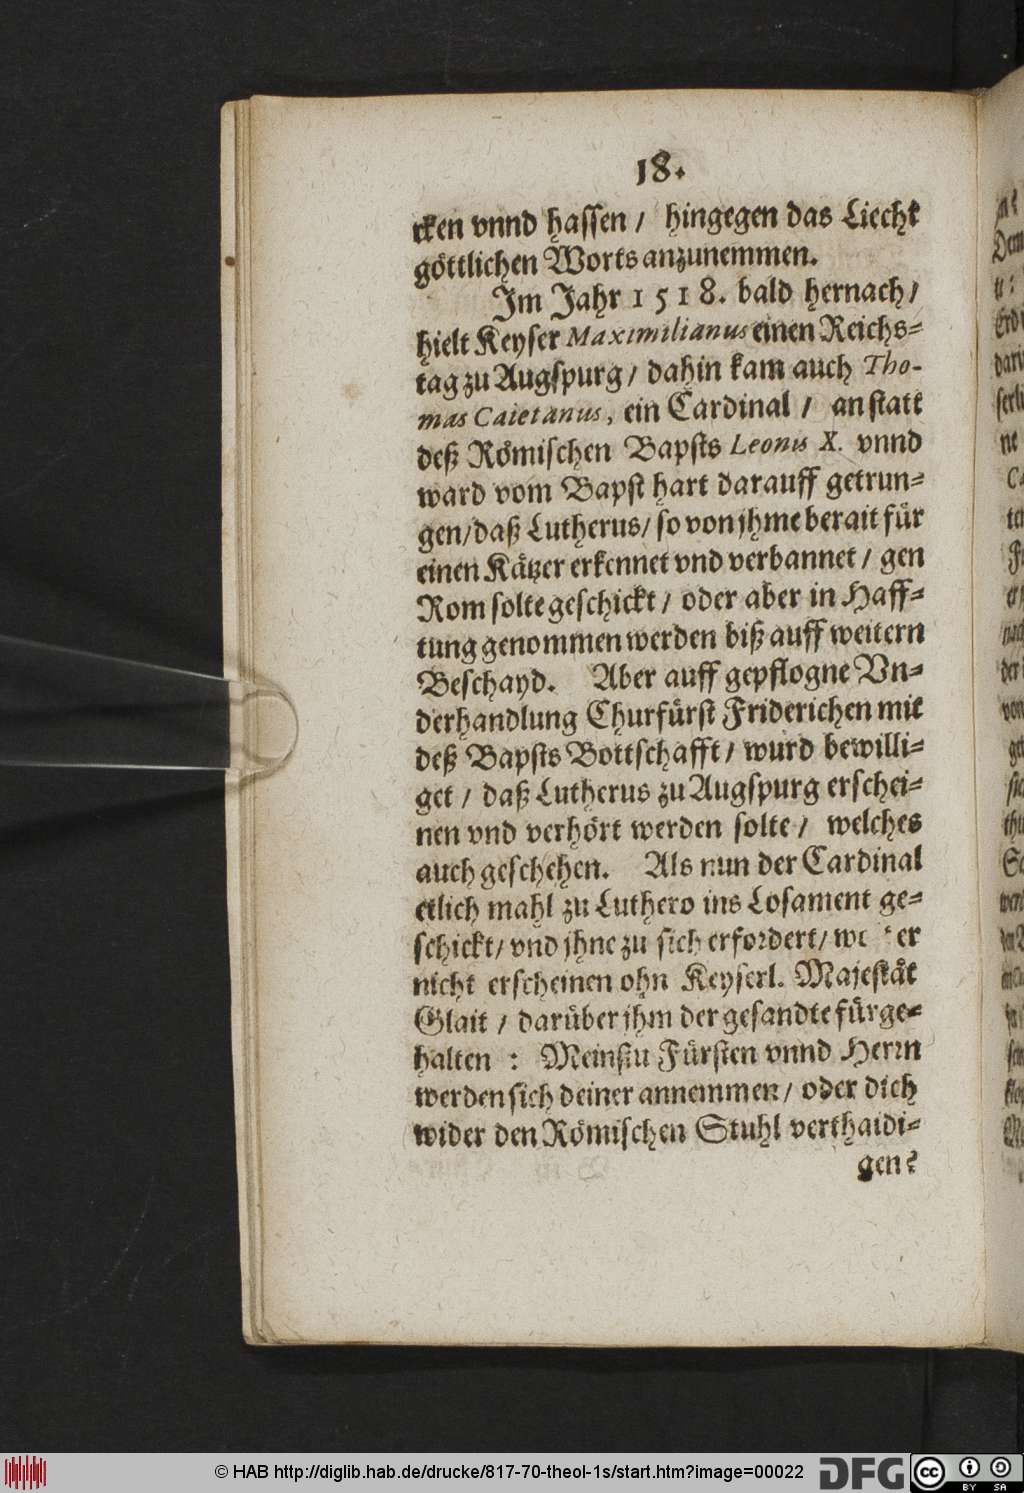 18.
cken vnnd hassen / hingegen das Liecht
göttlichen Worts anzunemmen.
Im Jahr 1518. bald hernach /
hielt Keyser Maximilianus einen Reichs-
tag zu Augspurg / dahin kam auch Tho-
mas Caietanus, ein Cardinal / an statt
deß Römischen Bapsts Leonis X. vnnd
ward vom Bapst hart darauff getrun-
gen / daß Lutherus / so von jhme berait für
einen Kätzer erkennet vnd verbannet / gen
Rom solte geschickt / oder aber in Haff-
tung genommen werden biß auff weitern
Beschayd. Aber auff gepflogne Vn-
derhandlung Churfürst Friderichen mit
deß Bapsts Bottschafft / wurd bewilli-
get / daß Lutherus zu Augspurg erschei-
nen vnd verhört werden solte / welches
auch geschehen. Als nun der Cardinal
etlich mahl zu Luthero ins Losament ge-
schickt / vnd jhne zu sich erfordert / er
nicht erscheinen ohn Keyserl. Majestät
Glait / darüber jhm der gesandte fürge-
halten : Meinstu Fürsten vnnd Herrn
werden sich deiner annemmen / oder dich
wider den Römischen Stuhl verthaidi-
gen?
© HAB http://diglib.hab.de/drucke/817-70-theol-1s/start.htm?image=00022
DFG
cc
BY SA